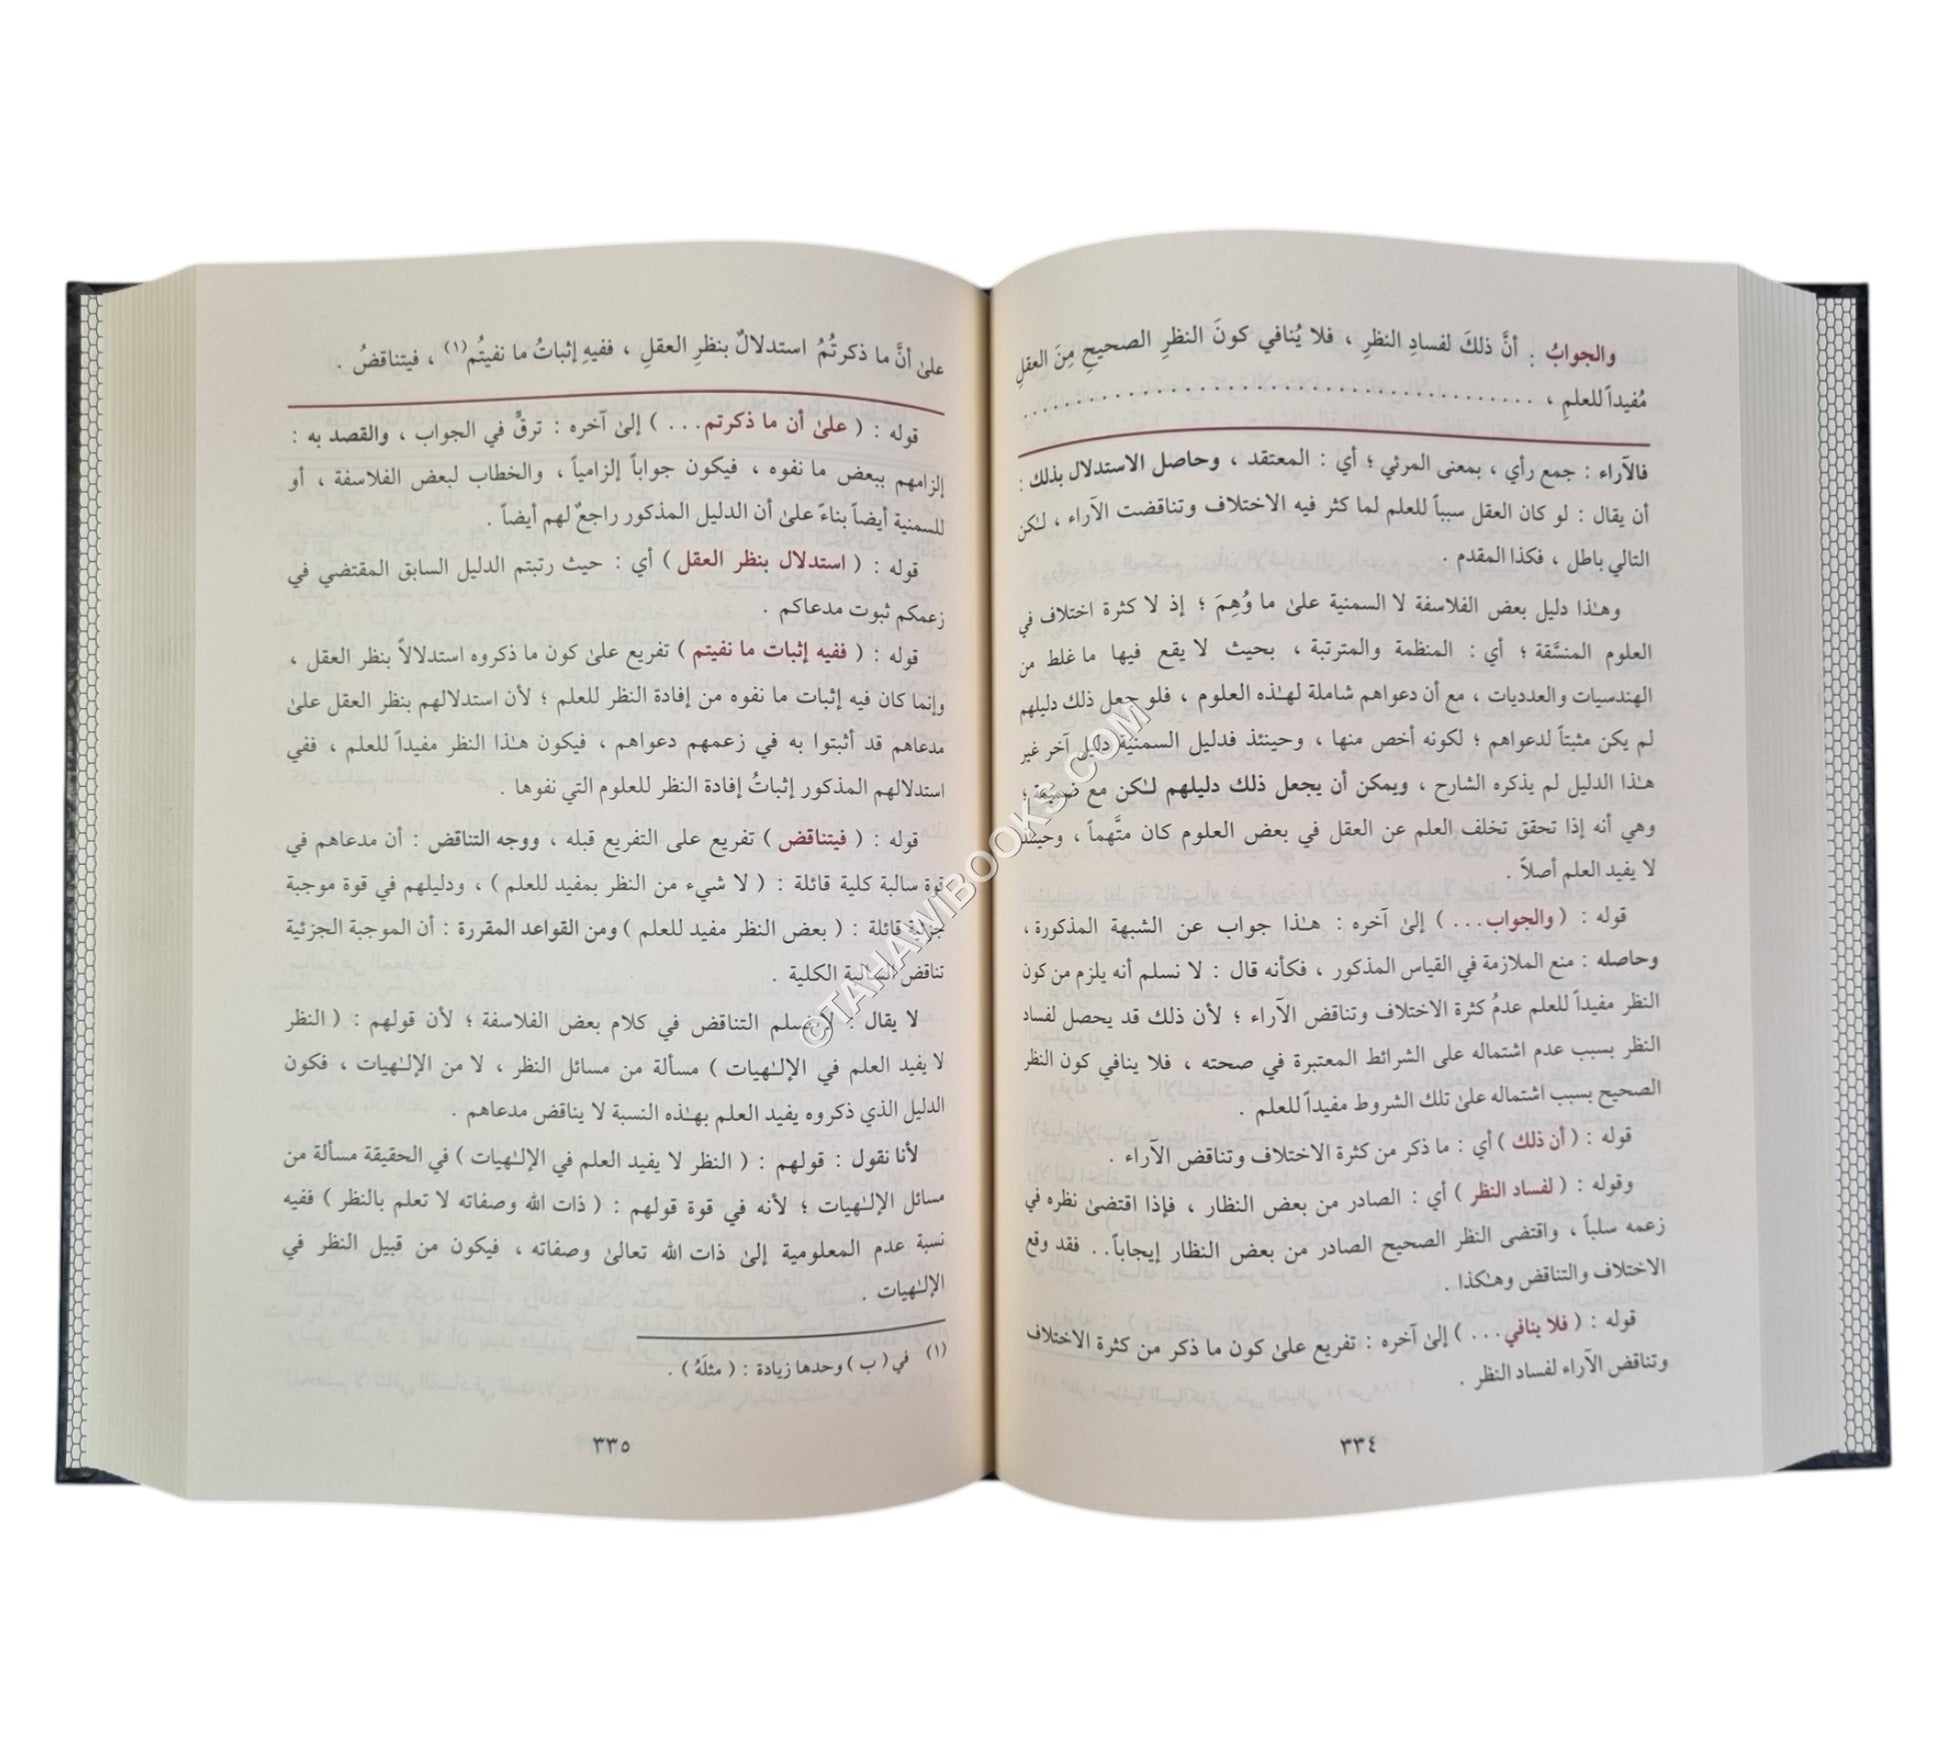 والجوابُ : أنَّ ذلكَ لفسادِ النظرِ ، فلا يُنافي كونَ النظرِ الصحيحِ مِنَ العقلِ
مُفيداً للعلمِ ، . . . . . . . . . . . . . . . . . . . . . . . . . . . . . . . . . . . . . . . .
فالآراء : جمع رأي ، بمعنى المرئي ؛ أي : المعتقد ، وحاصل الاستدلال بذلك :
أن يقال : لو كان العقل سبباً للعلم لما كثر فيه الاختلاف وتناقضت الآراء ، لـٰكن
التالي باطل ، فكذا المقدم .
وهـٰذا دليل بعض الفلاسفة لا السمنية علىٰ ما وُهِمَ ؛ إذ لا كثرة اختلاف في
العلوم المنسَّقة ؛ أي : المنظمة والمترتبة ، بحيث لا يقع فيها ما غلط من
الهندسيات والعدديات ، مع أن دعواهم شاملة لهـٰذه العلوم ، فلو جعل ذلك دليلهم
لم يكن مثبتاً لدعواهم ؛ لكونه أخص منها ، وحينئذ فدليل السمنية دليل آخر غير
هـٰذا الدليل لم يذكره الشارح ، ويمكن أن يجعل ذلك دليلهم لـٰكن مع ضميمة ؛
وهي أنه إذا تحقق تخلف العلم عن العقل في بعض العلوم كان متَّهماً ، وحينئذ
لا يفيد العلم أصلاً .
قوله : ( والجواب . . . ) إلىٰ آخره : هـٰذا جواب عن الشبهة المذكورة ،
وحاصله : منع الملازمة في القياس المذكور ، فكأنه قال : لا نسلم أنه يلزم من كون
النظر مفيداً للعلم عدمُ كثرة الاختلاف وتناقض الآراء ؛ لأن ذلك قد يحصل لفساد
النظر بسبب عدم اشتماله على الشرائط المعتبرة في صحته ، فلا ينافي كون النظر
الصحيح بسبب اشتماله علىٰ تلك الشروط مفيداً للعلم .
قوله : ( أن ذلك ) أي : ما ذكر من كثرة الاختلاف وتناقض الآراء .
وقوله : ( لفساد النظر ) أي : الصادر من بعض النظار ، فإذا اقتضىٰ نظره في
زعمه سلباً ، واقتضى النظر الصحيح الصادر من بعض النظار إيجاباً . . فقد وقع
الاختلاف والتناقض وهـٰكذا .
قوله : ( فلا ينافي . . . ) إلىٰ آخره : تفريع علىٰ كون ما ذكر من كثرة الاختلاف
وتناقض الآراء لفساد النظر .
٣٣٤
علىٰ أنَّ ما ذكرتُمُ استدلالٌ بنظرِ العقلِ ، ففيهِ إثباتُ ما نفيتُم(١) ، فيتناقضُ .
قوله : ( علىٰ أن ما ذكرتم . . . ) إلىٰ آخره : ترقٍّ في الجواب ، والقصد به :
إلزامهم ببعض ما نفوه ، فيكون جواباً إلزامياً ، والخطاب لبعض الفلاسفة ، أو
للسمنية أيضاً بناءً علىٰ أن الدليل المذكور راجعٌ لهم أيضاً .
قوله : ( استدلال بنظر العقل ) أي : حيث رتبتم الدليل السابق المقتضي في
زعمكم ثبوت مدعاكم .
قوله : ( ففيه إثبات ما نفيتم ) تفريع علىٰ كون ما ذكروه استدلالاً بنظر العقل ،
وإنما كان فيه إثبات ما نفوه من إفادة النظر للعلم ؛ لأن استدلالهم بنظر العقل علىٰ
مدعاهم قد أثبتوا به في زعمهم دعواهم ، فيكون هـٰذا النظر مفيداً للعلم ، ففي
استدلالهم المذكور إثباتُ إفادة النظر للعلوم التي نفوها .
قوله : ( فيتناقض ) تفريع على التفريع قبله ، ووجه التناقض : أن مدعاهم في
قوة سالبة كلية قائلة : ( لا شيء من النظر بمفيد للعلم ) ، ودليلهم في قوة موجبة
جزئية قائلة : ( بعض النظر مفيد للعلم ) ومن القواعد المقررة : أن الموجبة الجزئية
تناقض السالبة الكلية .
لا يقال : لا نسلم التناقض في كلام بعض الفلاسفة ؛ لأن قولهم : ( النظر
لا يفيد العلم في الإلـٰهيات ) مسألة من مسائل النظر ، لا من الإلـٰهيات ، فكون
الدليل الذي ذكروه يفيد العلم بهـٰذه النسبة لا يناقض مدعاهم .
لأنا نقول : قولهم : ( النظر لا يفيد العلم في الإلـٰهيات ) في الحقيقة مسألة من
مسائل الإلـٰهيات ؛ لأنه في قوة قولهم : ( ذات الله وصفاته لا تعلم بالنظر ) ففيه
نسبة عدم المعلومية إلىٰ ذات الله تعالىٰ وصفاته ، فيكون من قبيل النظر في
الإلـٰهيات .
(١) في ( ب ) وحدها زيادة : ( مثلَهُ ) .
٣٣٥
©TAHAWIBOOKS.COM